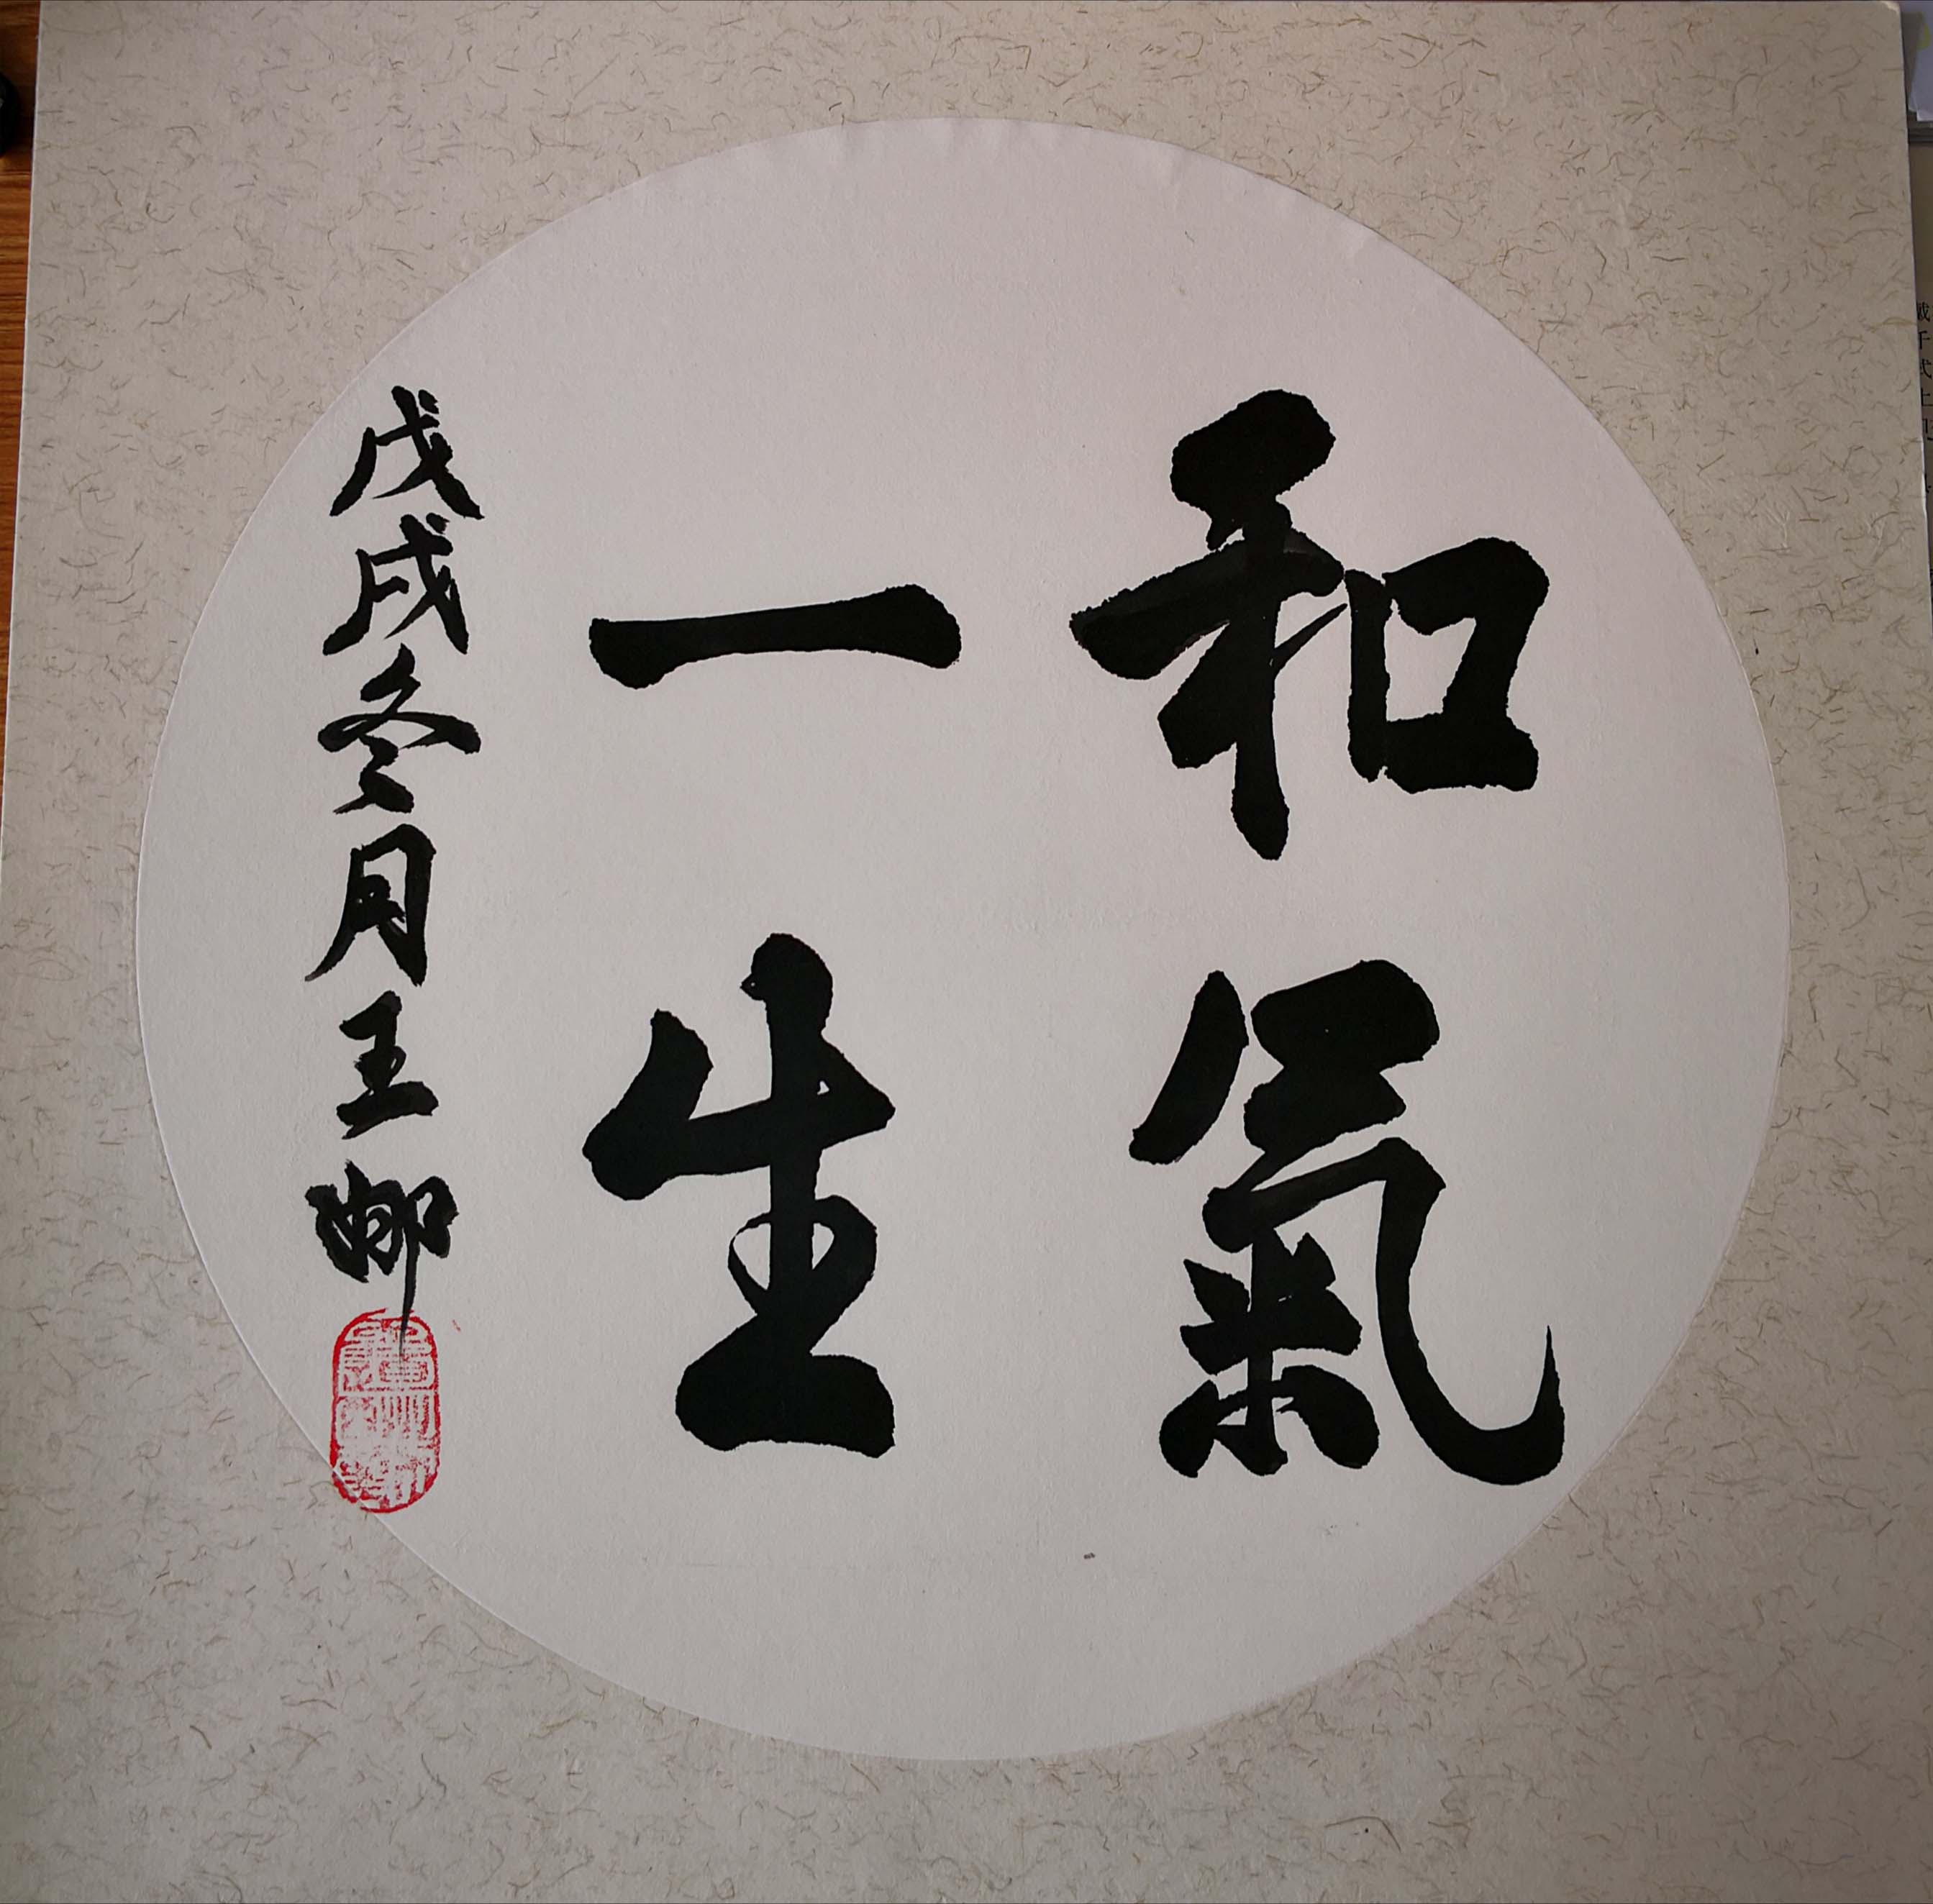 和氣
一生
戊戌冬月王